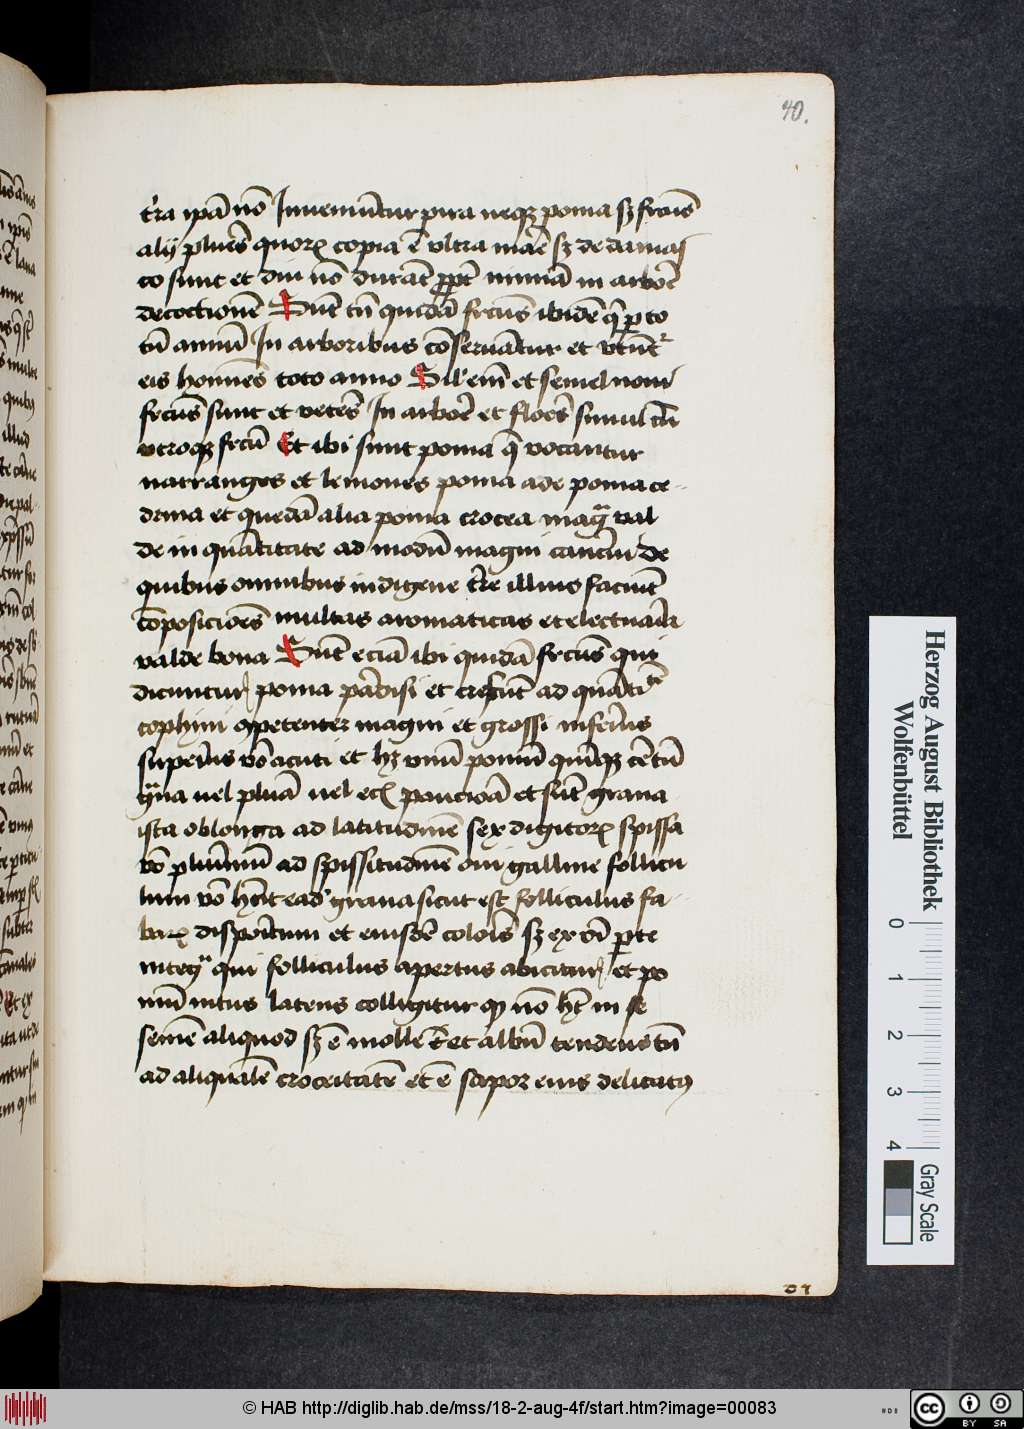 40.
t'ra ipā nō Inueniūtur pira neqꝫ poma sꝫ frcūs
alij plures quorꝫ copia ē vltra mare sꝫ de damas
co sunt et diu nō durāt ꝓpt' nimiā in arbore
decoctionē Sūt tn̄ quidā frcūs ibidē qi per to
tū annū In arboribus cōseruātur et vtūt'
eis homines toto anno Sil' eni et semel noui
frcūs sunt et veteres In arbore et flores simul cū
vtroqꝫ frcū Et ibi sunt poma q̄ vocantur
narranges et lemones poma ade poma ce-
drina et quedā alia poma crocea magͣ val
de in quātitate ad modū magni cantari de
quibus omnibus indigene t're illius faciūt
cōposiciōes multas aromaticas et electuaria
valde bona Sūt eciā ibi quidā frcūs qui
dicuntur poma paradisi et crescūt ad quātitͭē
cophini opetenter magni et grossi inferius
superius vō acuti et hꝫ vnū pomū quīqꝫ cētū
gͣna uel plura uel eciā pauciora et sūt grana
ista oblonga ad latitudinē sex digitorꝫ spissa
vō plurimū ad spissitudinē oui galline follicu
lum vō hn̄t ead' grana sicut est folliculus fa-
barꝫ dispoitum et eiusdē coloris sꝫ ex oī parte
integͬ qui folliculus apertus abicitur et po
mū intus latens colligitur qꝫ nō hꝫ in se
semē aliquod sꝫ ē molle et albū tendens tn̄
ad aliqualē croceitatē et ē sapor eius delicatꝰ
Herzog August Bibliothek
Wolfenbüttel
0 1 2 3 4
Gray Scale
© HAB http://diglib.hab.de/mss/18-2-aug-4f/start.htm?image=00083
cc BY SA